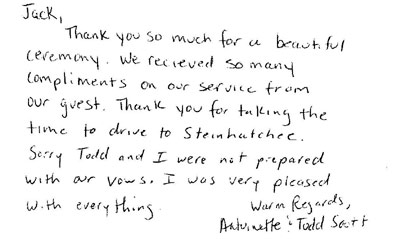 Jack,
Thank you so much for a beautiful
ceremony. We recieved so many
compliments on our service from
our guest. Thank you for taking the
time to drive to Steinhatchee.
Sorry Todd and I were not prepared
with our vows. I was very pleased
with everything.
Warm Regards,
Antoinette & Todd Scott